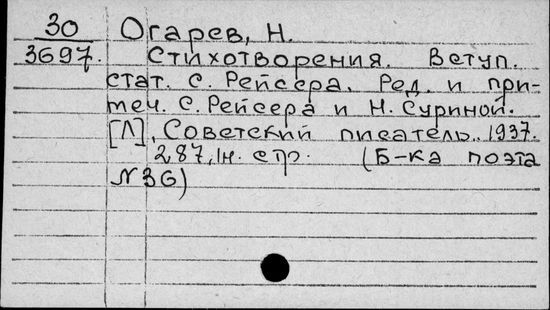 30 Огарев, Н.
3697. Стихотворения. Вступ.
стат. С. Рейсера. Ред. и при-
меч. С. Рейсера и Н. Суриной.
[Л], Советский писатель, 1937.
287, 1н. стр. (Б-ка поэта
№36)